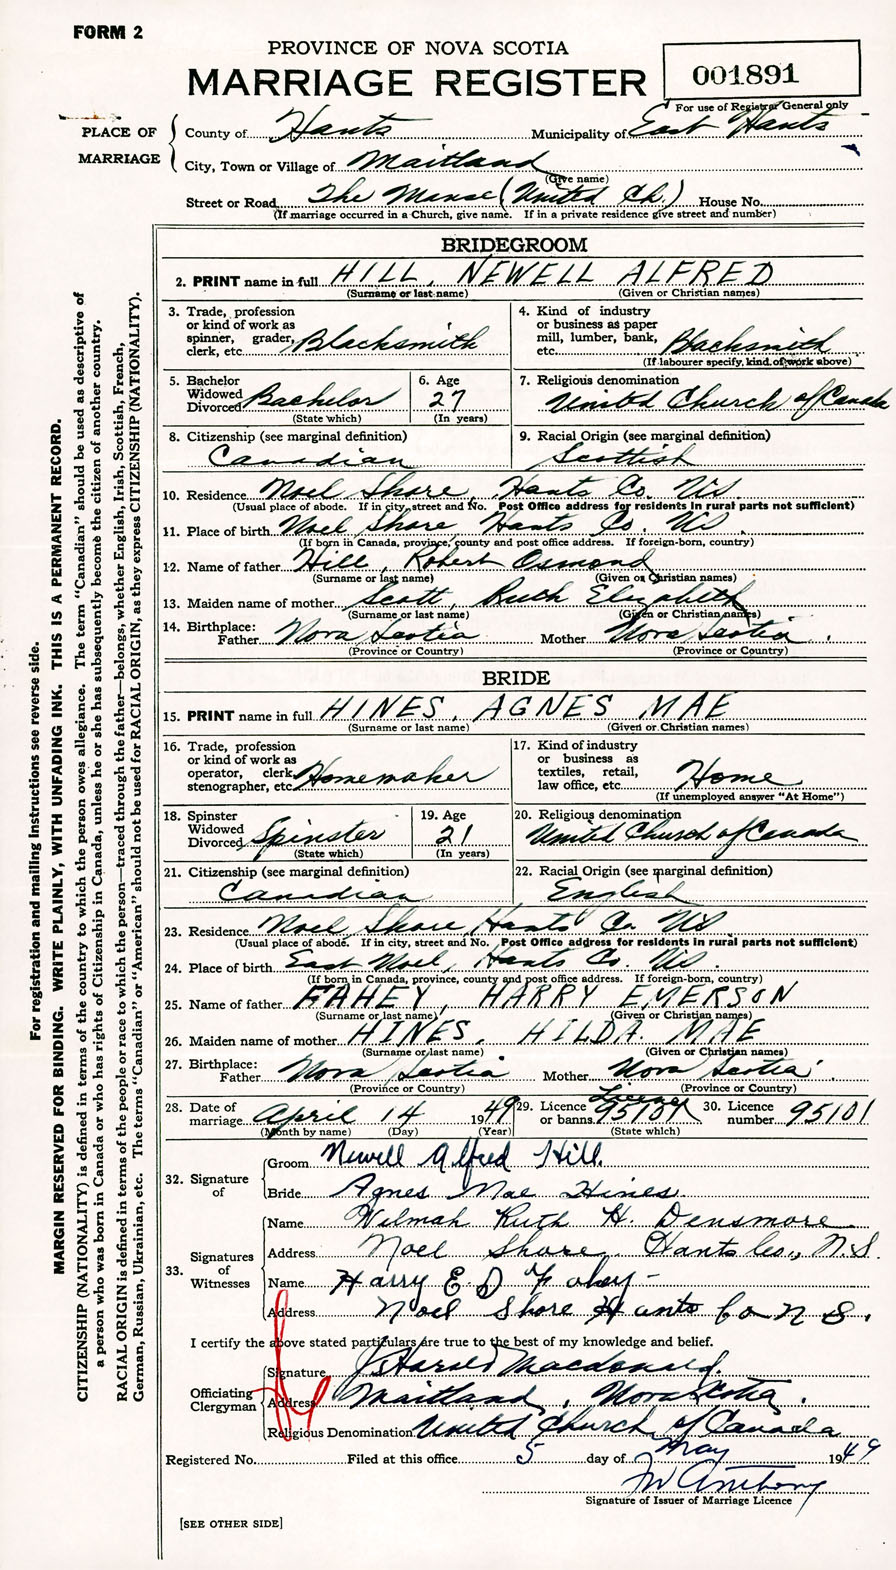 FORM 2
PROVINCE OF NOVA SCOTIA
MARRIAGE REGISTER
001891
For use of Registrar General only
PLACE OF MARRIAGE
County of Hants Municipality of East Hants
City, Town or Village of Maitland
(Give name)
Street or Road The Manse (United Ch.) House No.
(If marriage occurred in a Church, give name. If in a private residence give street and number)
BRIDEGROOM
2. PRINT name in full HILL, NEWELL ALFRED
(Surname or last name) (Given or Christian names)
3. Trade, profession or kind of work as spinner, grader, clerk, etc. Blacksmith
4. Kind of industry or business as paper mill, lumber, bank, etc. Blacksmith
(If labourer specify, kind of work above)
5. Bachelor Widowed Divorced Bachelor
(State which)
6. Age 27
(In years)
7. Religious denomination
United Church of Canada
8. Citizenship (see marginal definition)
Canadian
9. Racial Origin (see marginal definition)
Scottish
10. Residence Noel Shore, Hants Co. NS
(Usual place of abode. If in city, street and No. Post Office address for residents in rural parts not sufficient)
11. Place of birth Noel Shore Hants Co. NS
(If born in Canada, province, county and post office address. If foreign-born, country)
12. Name of father Hill, Robert Osmond
(Surname or last name) (Given or Christian names)
13. Maiden name of mother Scott, Ruth Elizabeth
(Surname or last name) (Given or Christian names)
14. Birthplace: Father Nova Scotia Mother Nova Scotia.
(Province or Country) (Province or Country)
BRIDE
15. PRINT name in full HINES, AGNES MAE
(Surname or last name) (Given or Christian names)
16. Trade, profession or kind of work as operator, clerk, stenographer, etc. Homemaker
17. Kind of industry or business as textiles, retail, law office, etc. Home
(If unemployed answer "At Home")
18. Spinster Widowed Divorced Spinster
(State which)
19. Age 21
(In years)
20. Religious denomination
United Church of Canada
21. Citizenship (see marginal definition)
Canadian
22. Racial Origin (see marginal definition)
English
23. Residence Noel Shore, Hants Co. NS
(Usual place of abode. If in city, street and No. Post Office address for residents in rural parts not sufficient)
24. Place of birth East Noel, Hants Co. NS.
(If born in Canada, province, county and post office address. If foreign-born, country)
25. Name of father FAHEY, HARRY EMERSON
(Surname or last name) (Given or Christian names)
26. Maiden name of mother HINES, HILDA MAE
(Surname or last name) (Given or Christian names)
27. Birthplace: Father Nova Scotia Mother Nova Scotia.
(Province or Country) (Province or Country)
28. Date of marriage April 14 1949
(Month by name) (Day) (Year)
29. Licence or banns Licence 95101
(State which)
30. Licence number 95101
32. Signature of
Groom Newell Alfred Hill.
Bride Agnes Mae Hines.
33. Signatures of Witnesses
Name Wilmah Ruth H. Densmore
Address Noel Shore, Hants Co., N.S.
Name Harry E. D Fahey-
Address Noel Shore Hants Co N S.
I certify the above stated particulars are true to the best of my knowledge and belief.
Officiating Clergyman
Signature J. Harold Macdonald.
Address Maitland, Nova Scotia.
Religious Denomination United Church of Canada
Registered No. Filed at this office 5 day of May 1949
Anthony
Signature of Issuer of Marriage Licence
[SEE OTHER SIDE]
For registration and mailing instructions see reverse side.
MARGIN RESERVED FOR BINDING. WRITE PLAINLY, WITH UNFADING INK. THIS IS A PERMANENT RECORD.
CITIZENSHIP (NATIONALITY) is defined in terms of the country to which the person owes allegiance. The term "Canadian" should be used as descriptive of
a person who was born in Canada or who has rights of Citizenship in Canada, unless he or she has subsequently become the citizen of another country.
RACIAL ORIGIN is defined in terms of the people or race to which the person—traced through the father—belongs, whether English, Irish, Scottish, French,
German, Russian, Ukrainian, etc. The terms "Canadian" or "American" should not be used for RACIAL ORIGIN, as they express CITIZENSHIP (NATIONALITY).